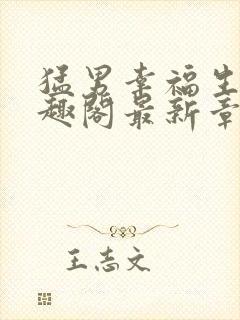 猛男幸福生
趣阁最新章
王志文